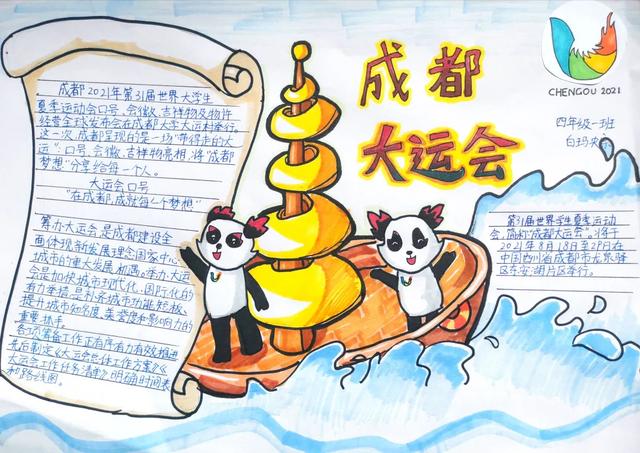 成都
大运会
CHENGOU 2021
四年级一班
白玛央
成都2021年第31届世界大学生
夏季运动会口号、会徽、吉祥物及物许
经营全球发布会在成都大学大运村举行。
这一次,成都呈现的是一场“带得走的大
运”,口号、会徽、吉祥物亮相,将“成都
梦想”分享给每一个人。
大运会口号
“在成都,成就每个梦想”
筹办大运会是成都建设全
面体现新发展理念国家中心
城市的重大发展机遇。举办大运
会是加快城市现代化、国际化的
有力举措,是补齐城市功能短板、
提升城市知名度、美誉度和影响力的
重要抓手。
各项筹备工作正有序有力有效推进
先后制定《大运会总体工作方案》《
大运会工作任务清单》明确时间表
和路线图。
第31届世界学生夏季运动
会,简称“成都大运会”。将于
2021年8月18日至29日在
中国四川省成都市龙泉驿
区东安湖片区举行。